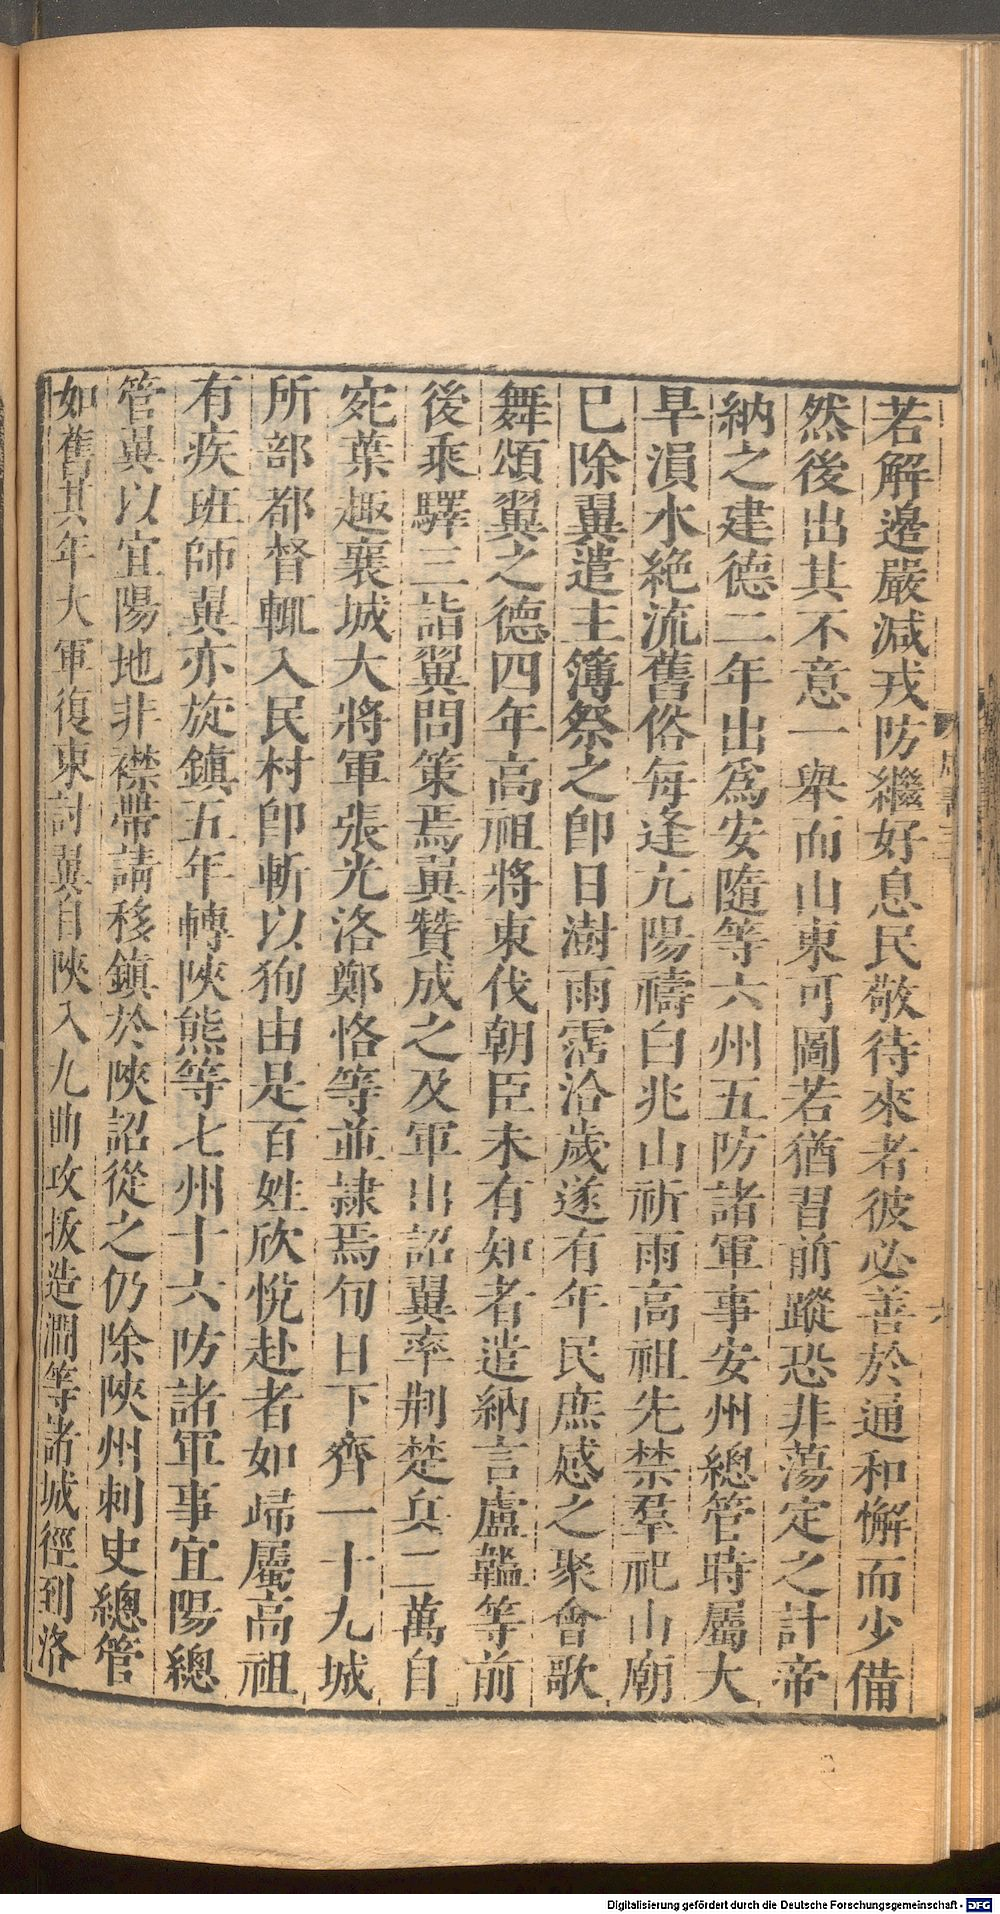 若解邊嚴減戎防繼好息民敬待來者彼必善於通和懈而少備
然後出其不意一舉而山東可圖若猶習前蹤恐非蕩定之計帝
納之建德二年出爲安隨等六州五防諸軍事安州總管時屬大
旱溳水絶流舊俗每逢亢陽禱白兆山祈雨高祖先禁羣祀山廟
已除翼遣主簿祭之卽日澍雨霑洽歲遂有年民庶感之聚會歌
舞頌翼之德四年高祖將東伐朝臣未有知者遣納言盧韞等前
後乘驛三詣翼問策焉翼贊成之及軍出詔翼率荆楚兵二萬自
宛葉趣襄城大將軍張光洛鄭恪等並隷焉旬日下齊一十九城
所部都督輒入民村卽斬以狥由是百姓欣悅赴者如歸屬高祖
有疾班師翼亦旋鎭五年轉陝熊等七州十六防諸軍事宜陽總
管翼以宜陽地非襟帶請移鎭於陝詔從之仍除陝州刺史總管
如舊其年大軍復東討翼自陝入九曲攻拔造澗等諸城徑到洛
Digitalisierung gefördert durch die Deutsche Forschungsgemeinschaft - DFG